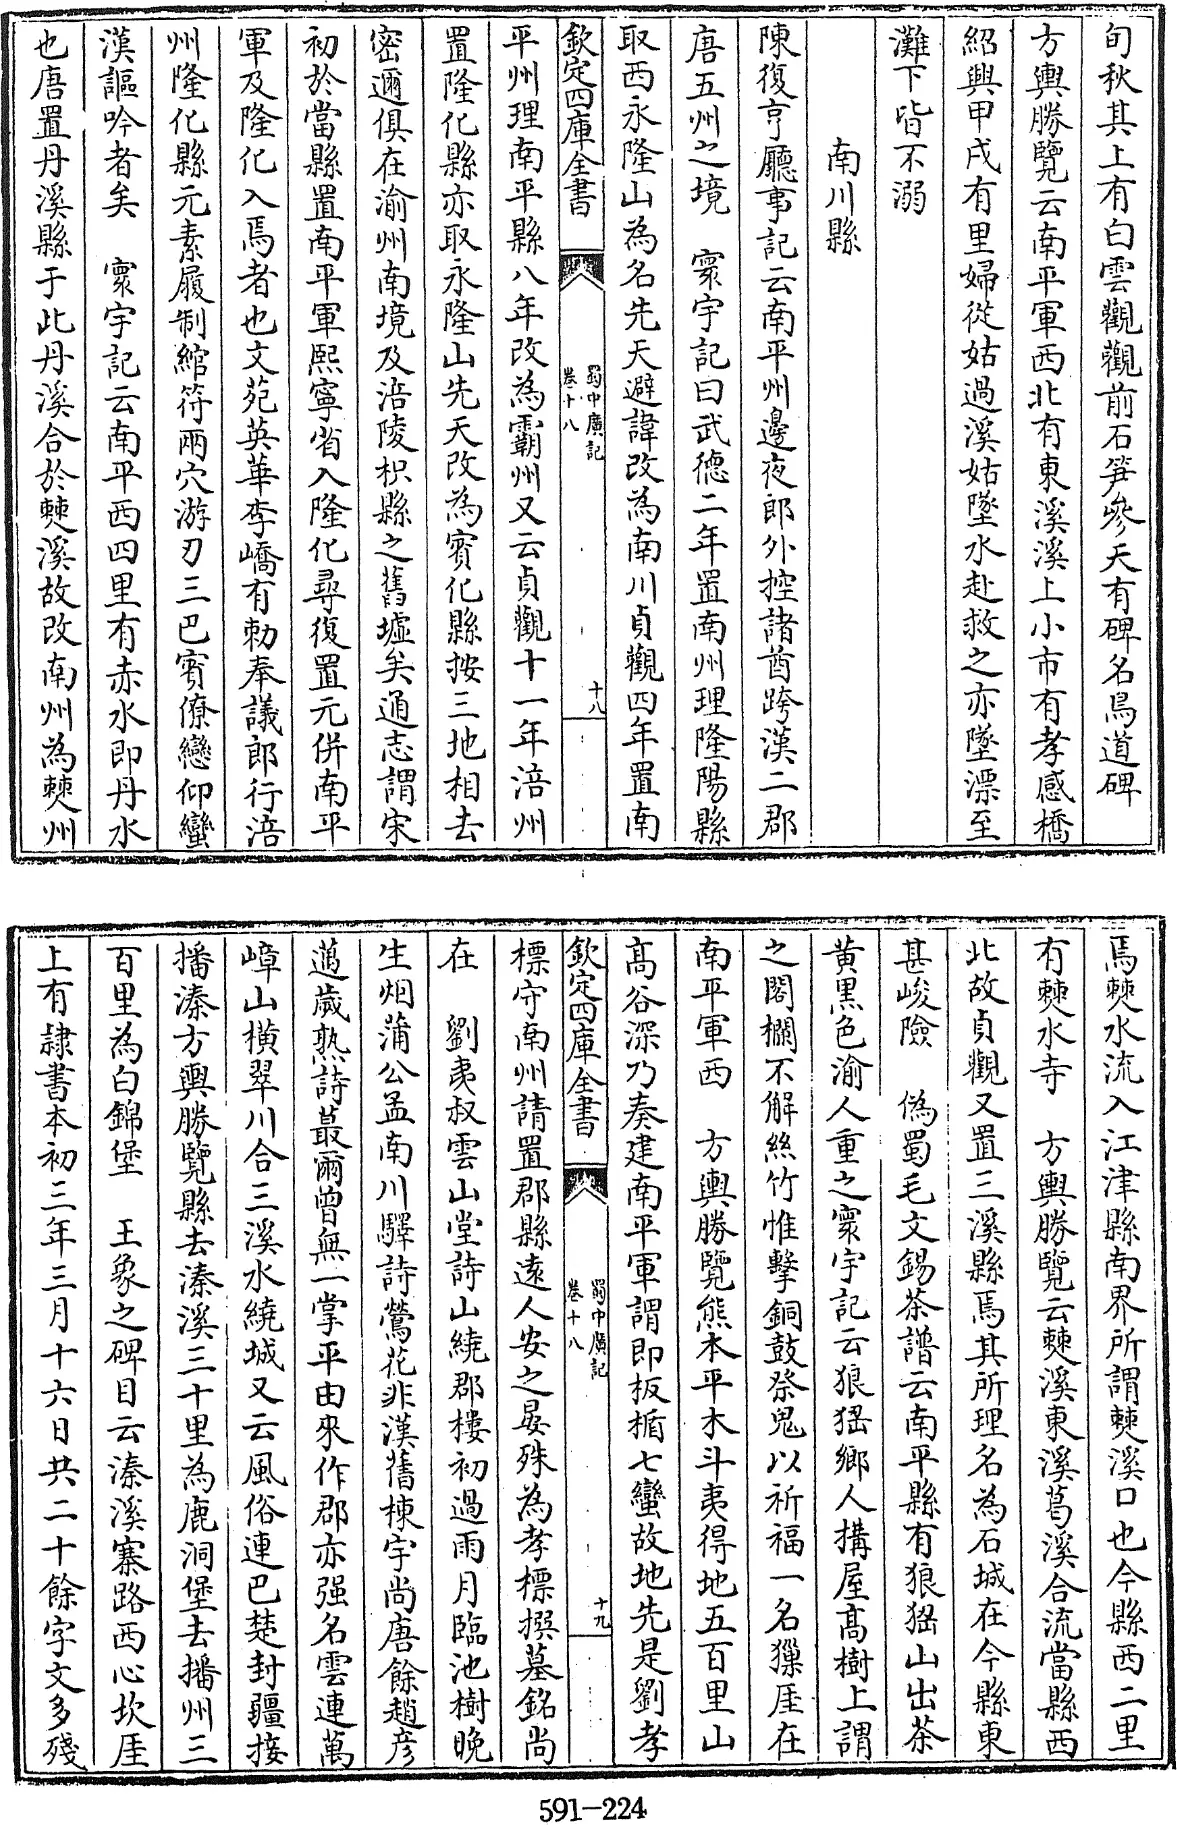 旬秋其上有白雲觀觀前石笋參天有碑名鳥道碑
方輿勝覽云南平軍西北有東溪溪上小市有孝感橋
紹興甲戌有里婦從姑過溪姑墜水赴救之亦墜漂至
灘下皆不溺
南川縣
陳復亨廳事記云南平州邊夜郎外控諸酋跨漢二郡
唐五州之境 寰宇記曰武德二年置南州理隆陽縣
取西永隆山為名先天避諱改為南川貞觀四年置南
欽定四庫全書 蜀中廣記 卷十八 十八
平州理南平縣八年改為霸州又云貞觀十一年涪州
置隆化縣亦取永隆山先天改為賓化縣按三地相去
密邇俱在渝州南境及涪陵枳縣之舊墟矣通志謂宋
初於當縣置南平軍熙寧省入隆化尋復置元併南平
軍及隆化入焉者也文苑英華李嶠有勅奉議郎行涪
州隆化縣元素履制綰符兩穴游刃三巴賓僚戀仰蠻
漢謳吟者矣 寰宇記云南平西四里有赤水即丹水
也唐置丹溪縣于此丹溪合於僰溪故改南州為僰州
焉僰水流入江津縣南界所謂僰溪口也今縣西二里
有僰水寺 方輿勝覽云僰溪東溪葛溪合流當縣西
北故貞觀又置三溪縣焉其所理名為石城在今縣東
甚峻險 偽蜀毛文錫茶譜云南平縣有狼猺山出茶
黃黑色渝人重之寰宇記云狼猺鄉人構屋高樹上謂
之閣欄不解絲竹惟擊銅鼓祭鬼以祈福一名獠厓在
南平軍西 方輿勝覽熊本平木斗夷得地五百里山
高谷深乃奏建南平軍謂即板楯七蠻故地先是劉孝
欽定四庫全書 蜀中廣記 卷十八 十九
標守南州請置郡縣遠人安之晏殊為孝標撰墓銘尚
在 劉夷叔雲山堂詩山繞郡樓初過雨月臨池樹晚
生烟蒲公孟南川驛詩鶯花非漢舊棟宇尚唐餘趙彦
邁歲熟詩蕞爾曾無一掌平由來作郡亦强名雲連萬
嶂山橫翠川合三溪水繞城又云風俗連巴楚封疆接
播溱方輿勝覽縣去溱溪三十里為鹿洞堡去播州三
百里為白錦堡 王象之碑目云溱溪寨路西心坎厓
上有隷書本初三年三月十六日共二十餘字文多殘
591-224